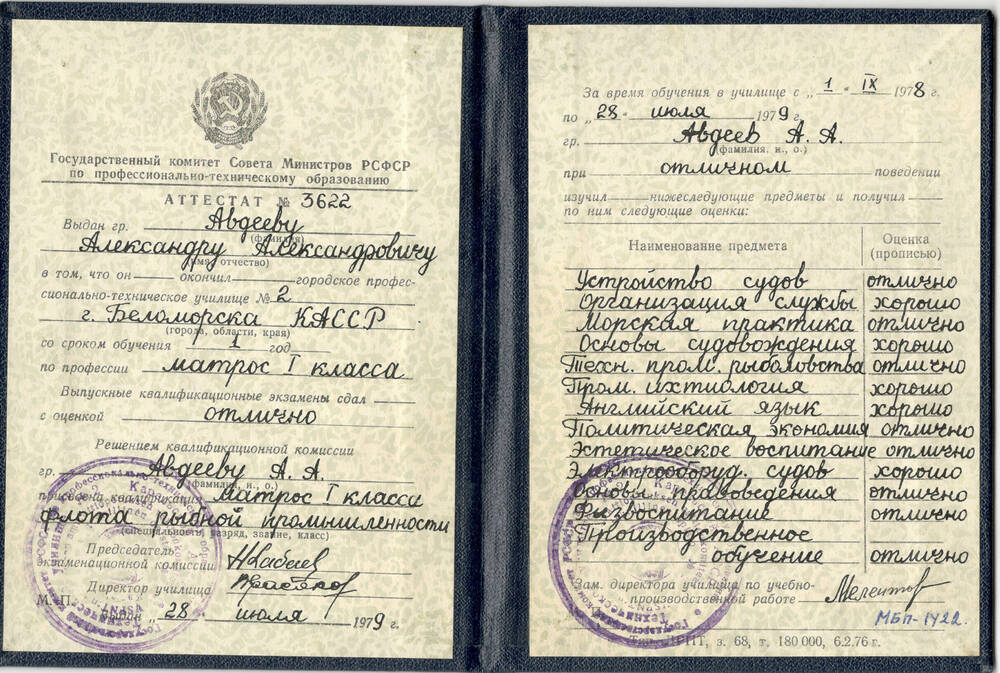 Государственный комитет Совета Министров РСФСР
по профессионально-техническому образованию
АТТЕСТАТ № 3622
Выдан гр. Авдееву
(фамилия)
Александру Александровичу
(имя, отчество)
в том, что он окончил городское профес-
сионально-техническое училище № 2
г. Беломорска КАССР
(города, области, края)
со сроком обучения 1 год
по профессии матрос I класса
Выпускные квалификационные экзамены сдал
с оценкой отлично
Решением квалификационной комиссии
гр. Авдееву А. А.
(фамилия, и., о.)
присвоена квалификация матрос I класса
флота рыбной промышленности
(специальность, разряд, звание, класс)
Председатель
экзаменационной комиссии
Директор училища
М. П. Выдан "28" июля 1979 г.
За время обучения в училище с „1" IX 1978 г.
по „28" июля 1979 г.
гр. Авдеев А. А.
(фамилия, и., о.)
при отличном поведении
изучил нижеследующие предметы и получил
по ним следующие оценки:
Наименование предмета Оценка (прописью)
Устройство судов отлично
Организация службы хорошо
Морская практика отлично
Основы судовождения хорошо
Техн. пром. рыболовства отлично
Пром. ихтиология хорошо
Английский язык хорошо
Политическая экономия отлично
Эстетическое воспитание отлично
Электрооборуд. судов хорошо
Основы правоведения отлично
Физвоспитание отлично
Производственное
обучение отлично
Зам. директора училища по учебно-
производственной работе
МБП-1422.
з. 68, т. 180 000, 6.2.76 г.